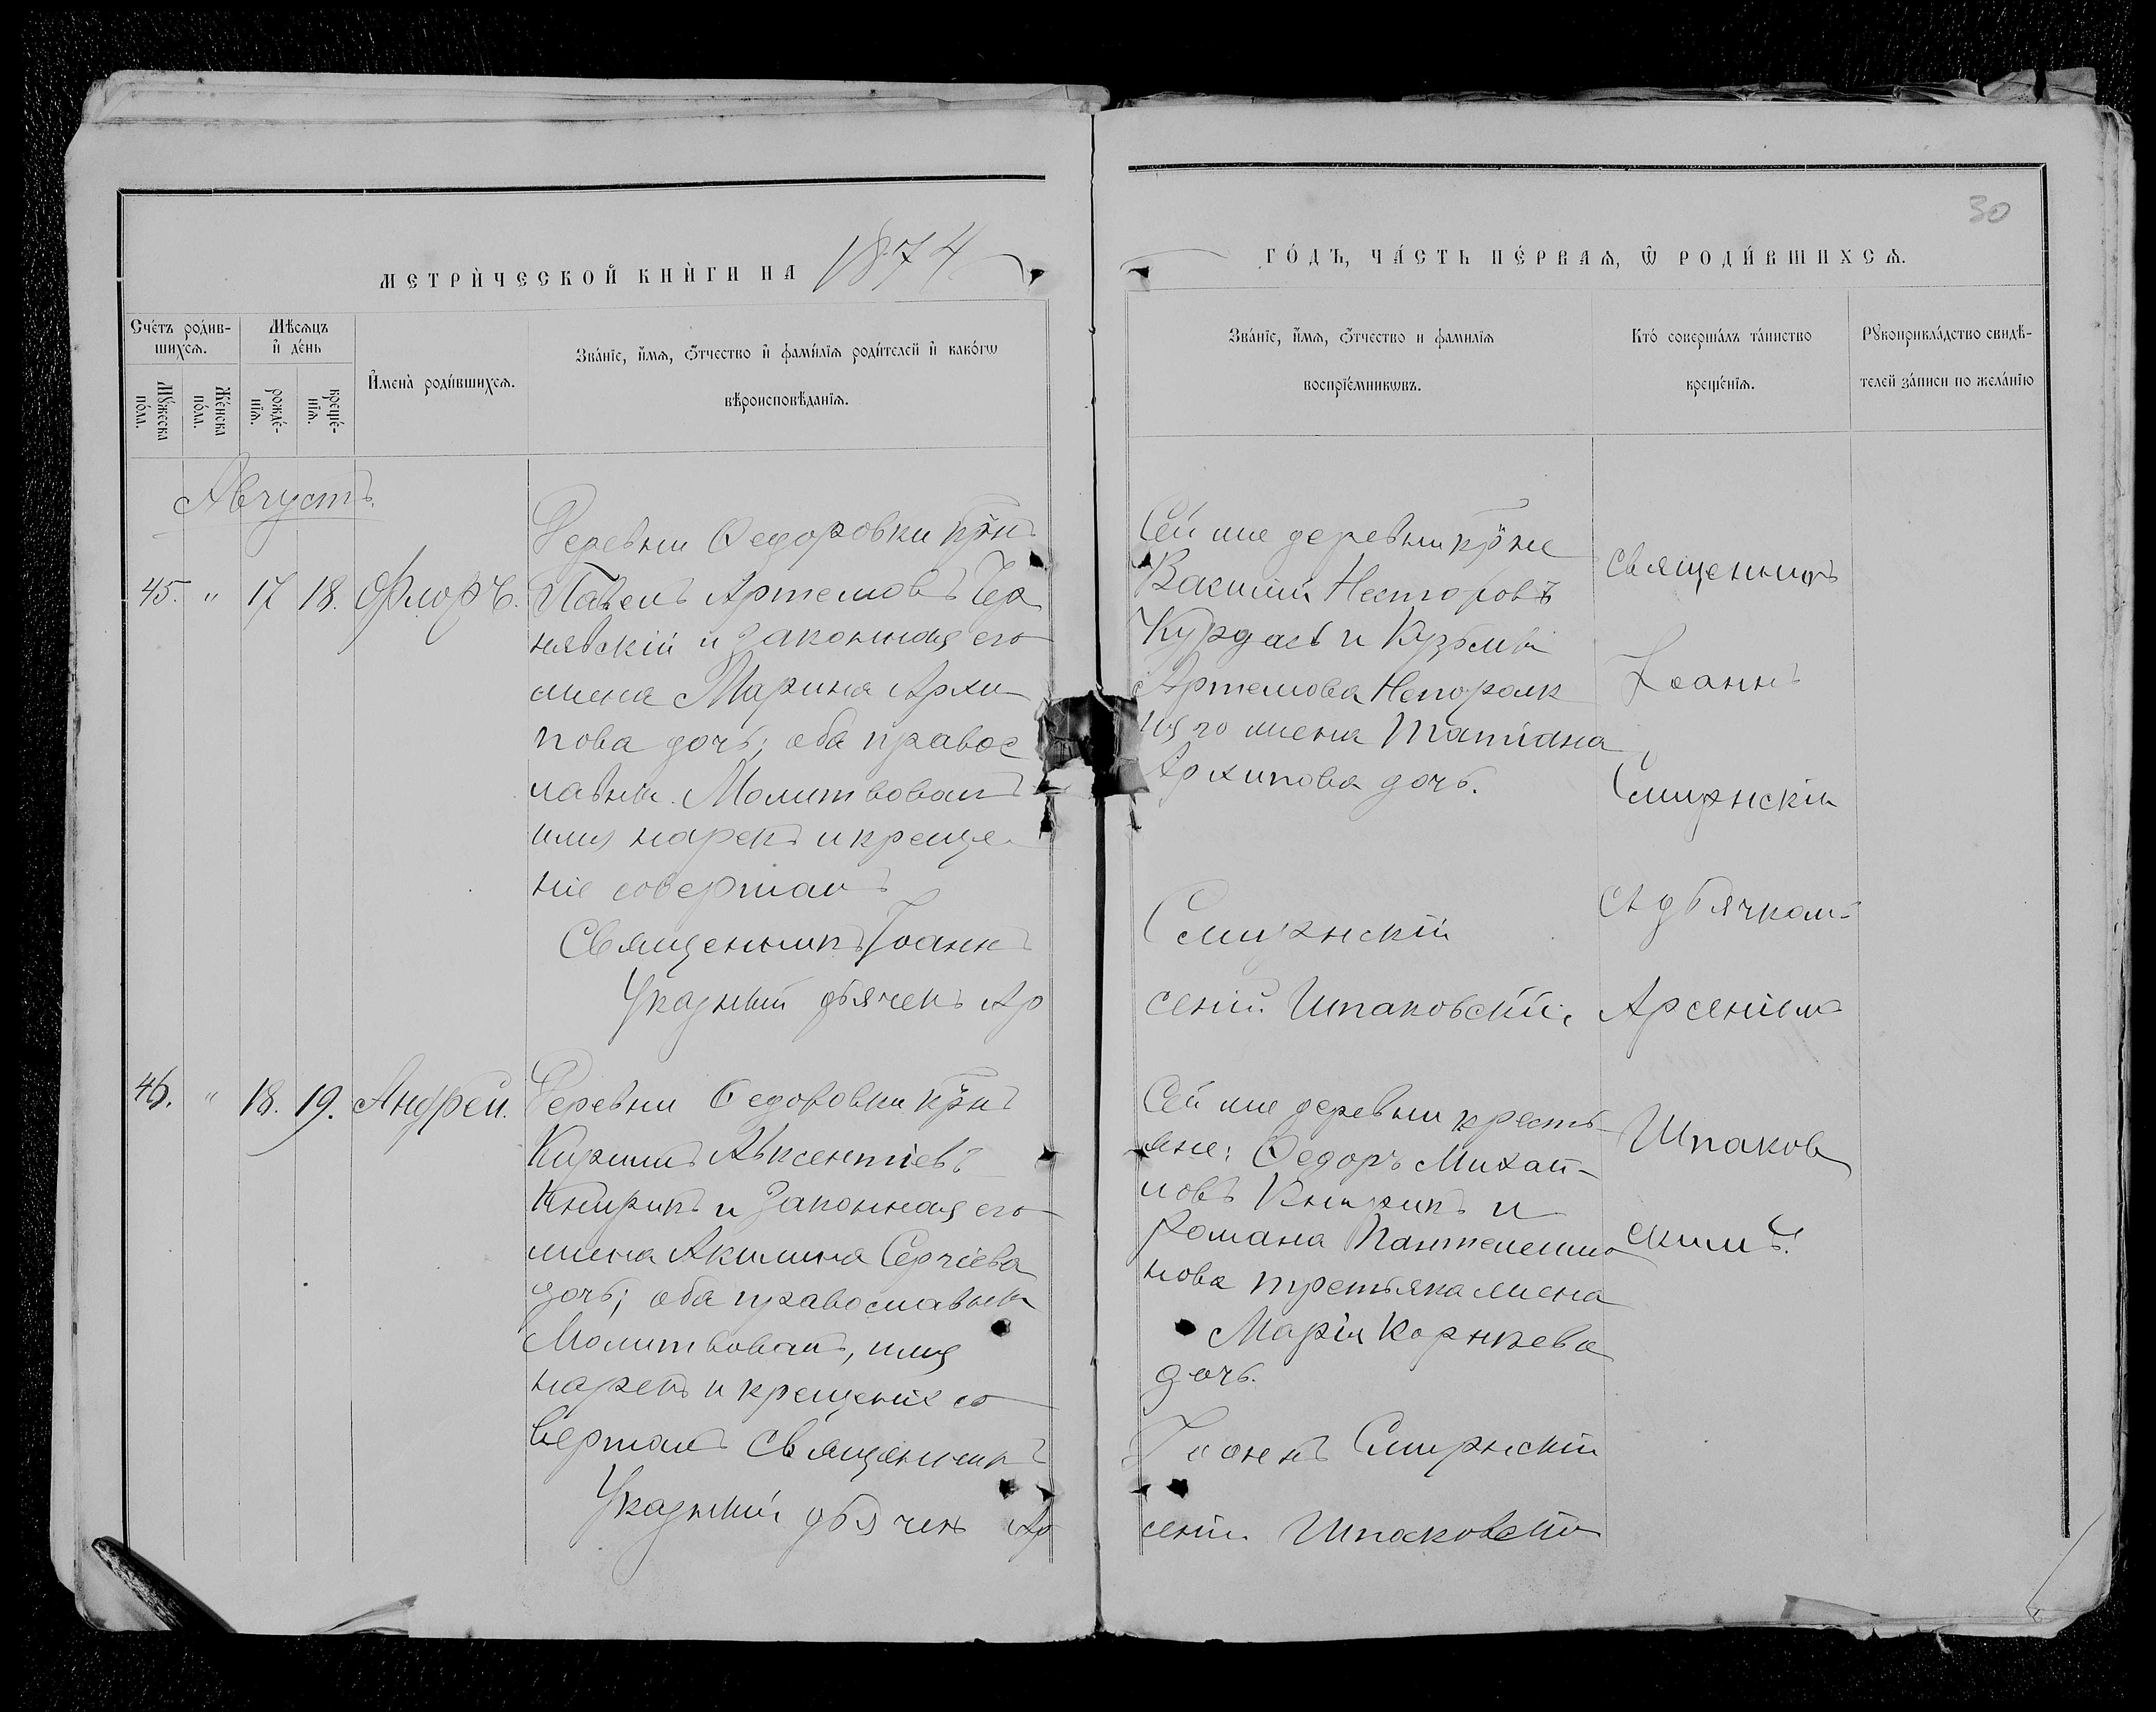 30
МЕТРИ́ЧЕСКОЙ КНИ́ГИ НА 1874
ГО́ДЪ, ЧА́СТЬ ПЕ́РВАѦ, Ѽ РОДИ́ВШИХСѦ.
Сче́тъ роди́в-
шихсѧ.
Мѣ́сѧцъ
и҆ де́нь
Мꙋ́жеска
по́ла.
Же́нска
по́ла.
рожде́-
нїѧ.
креще́-
нїѧ.
И҆мена̀ роди́вшихсѧ.
Зва́нїе, и҆́мѧ, ѻ҆́тчество и҆ фами́лїѧ роди́телей и҆ како́гѡ
вѣроисповѣ́данїѧ.
Зва́нїе, и҆́мѧ, ѻ҆́тчество и фами́лїѧ
воспрїе́мникѡвъ.
Кто́ соверша́лъ та́инство
креще́нїѧ.
Рꙋкоприкла́дство свидѣ́-
телей за́писи по жела́нїю
Августъ.
45. " 17 18. Флоръ.
Деревни Ѳедоровки крнъ
Павелъ Артемовъ Чер
нявскій и законная его
жена Марина Архи
пова дочь; оба правос
лавны. Молитвовалъ
имя нарекъ и креще
ніе совершалъ
Священникъ Іоаннъ
Указный дьячекъ Ар
Сей же деревни крне
Несторовъ
и Кузьмы
Артемова
жена Татіана
Архипова дочь.
Смирнскій
сеній Шпаковскій.
Священникъ
Іоаннъ
Смирнскій
съ дьячкомъ
Арсеніемъ
Шпаков
скимъ.
46. " 18. 19. Андрей.
Деревни Ѳедоровки крнъ
Кирилъ Авксентіевъ
Книрикъ и законная его
жена Акилина Сергіева
дочь; оба православны
Молитвовалъ, имя
нарекъ и крещеніе со
вершалъ Священникъ
Указный дьячекъ Ар
Сей же деревни кресть
яне: Ѳедоръ Михай
ловъ Книрикъ и
Романа Пантелеимо
нова третьяка жена
Марія Корнѣева
дочь.
Іоаннъ Смирнскій
сеній Шпаковскій